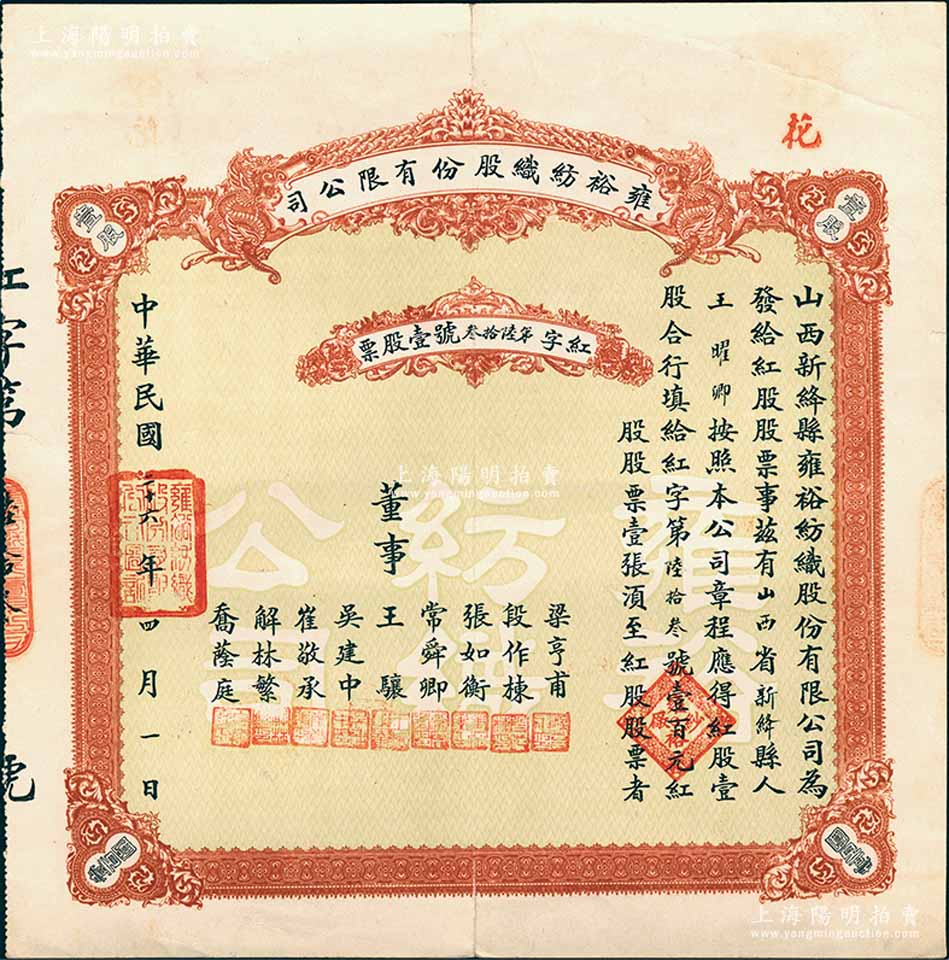 上海陽明拍賣
www.yangmingauction.com
花
雍裕紡織股份有限公司
壹股
壹股
紅字第陸拾叁號壹股票
山西新絳縣雍裕紡織股份有限公司為
發給紅股股票事茲有山西省新絳縣人
王曜卿按照本公司章程應得紅股壹
股合行填給紅字第陸拾叁號壹百元紅
股股票壹張須至紅股股票者
董事
梁亨甫
段作棟
張如衡
常舜卿
王驤
吳建中
崔敬承
解林繁
喬蔭庭
中華民國二十六年四月一日
雍裕紡織公司
上海陽明拍賣
www.yangmingauction.com
紅字第陸拾叁號
上海陽明拍賣
www.yangmingauction.com